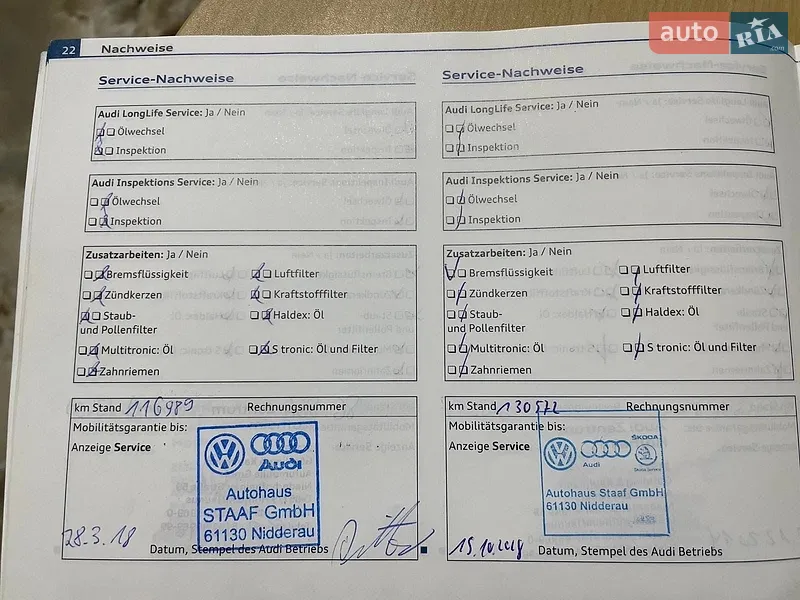 auto RIA.com
22 Nachweise
Service-Nachweise
Audi LongLife Service: Ja / Nein
Ölwechsel
Inspektion
Audi Inspektions Service: Ja / Nein
Ölwechsel
Inspektion
Zusatzarbeiten: Ja / Nein
Bremsflüssigkeit Luftfilter
Zündkerzen Kraftstofffilter
Staub- Haldex: Öl
und Pollenfilter
Multitronic: Öl S tronic: Öl und Filter
Zahnriemen
km Stand 116989 Rechnungsnummer
Mobilitätsgarantie bis:
Anzeige Service
Audi
Autohaus
STAAF GmbH
61130 Nidderau
28.3.18
Datum, Stempel des Audi Betriebs
Service-Nachweise
Audi LongLife Service: Ja / Nein
Ölwechsel
Inspektion
Audi Inspektions Service: Ja / Nein
Ölwechsel
Inspektion
Zusatzarbeiten: Ja / Nein
Bremsflüssigkeit Luftfilter
Zündkerzen Kraftstofffilter
Staub- Haldex: Öl
und Pollenfilter
Multitronic: Öl S tronic: Öl und Filter
Zahnriemen
km Stand 130572 Rechnungsnummer
Mobilitätsgarantie bis:
Anzeige Service
ŠKODA
Audi
Autohaus Staaf GmbH
61130 Nidderau
15.10.2018
Datum, Stempel des Audi Betriebs